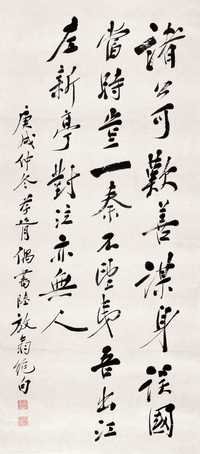 諸公可歎善謀身誤國
當時豈一秦不望夷吾出江
左新亭對泣亦無人
庚戌仲冬 偶書陸放翁絕句